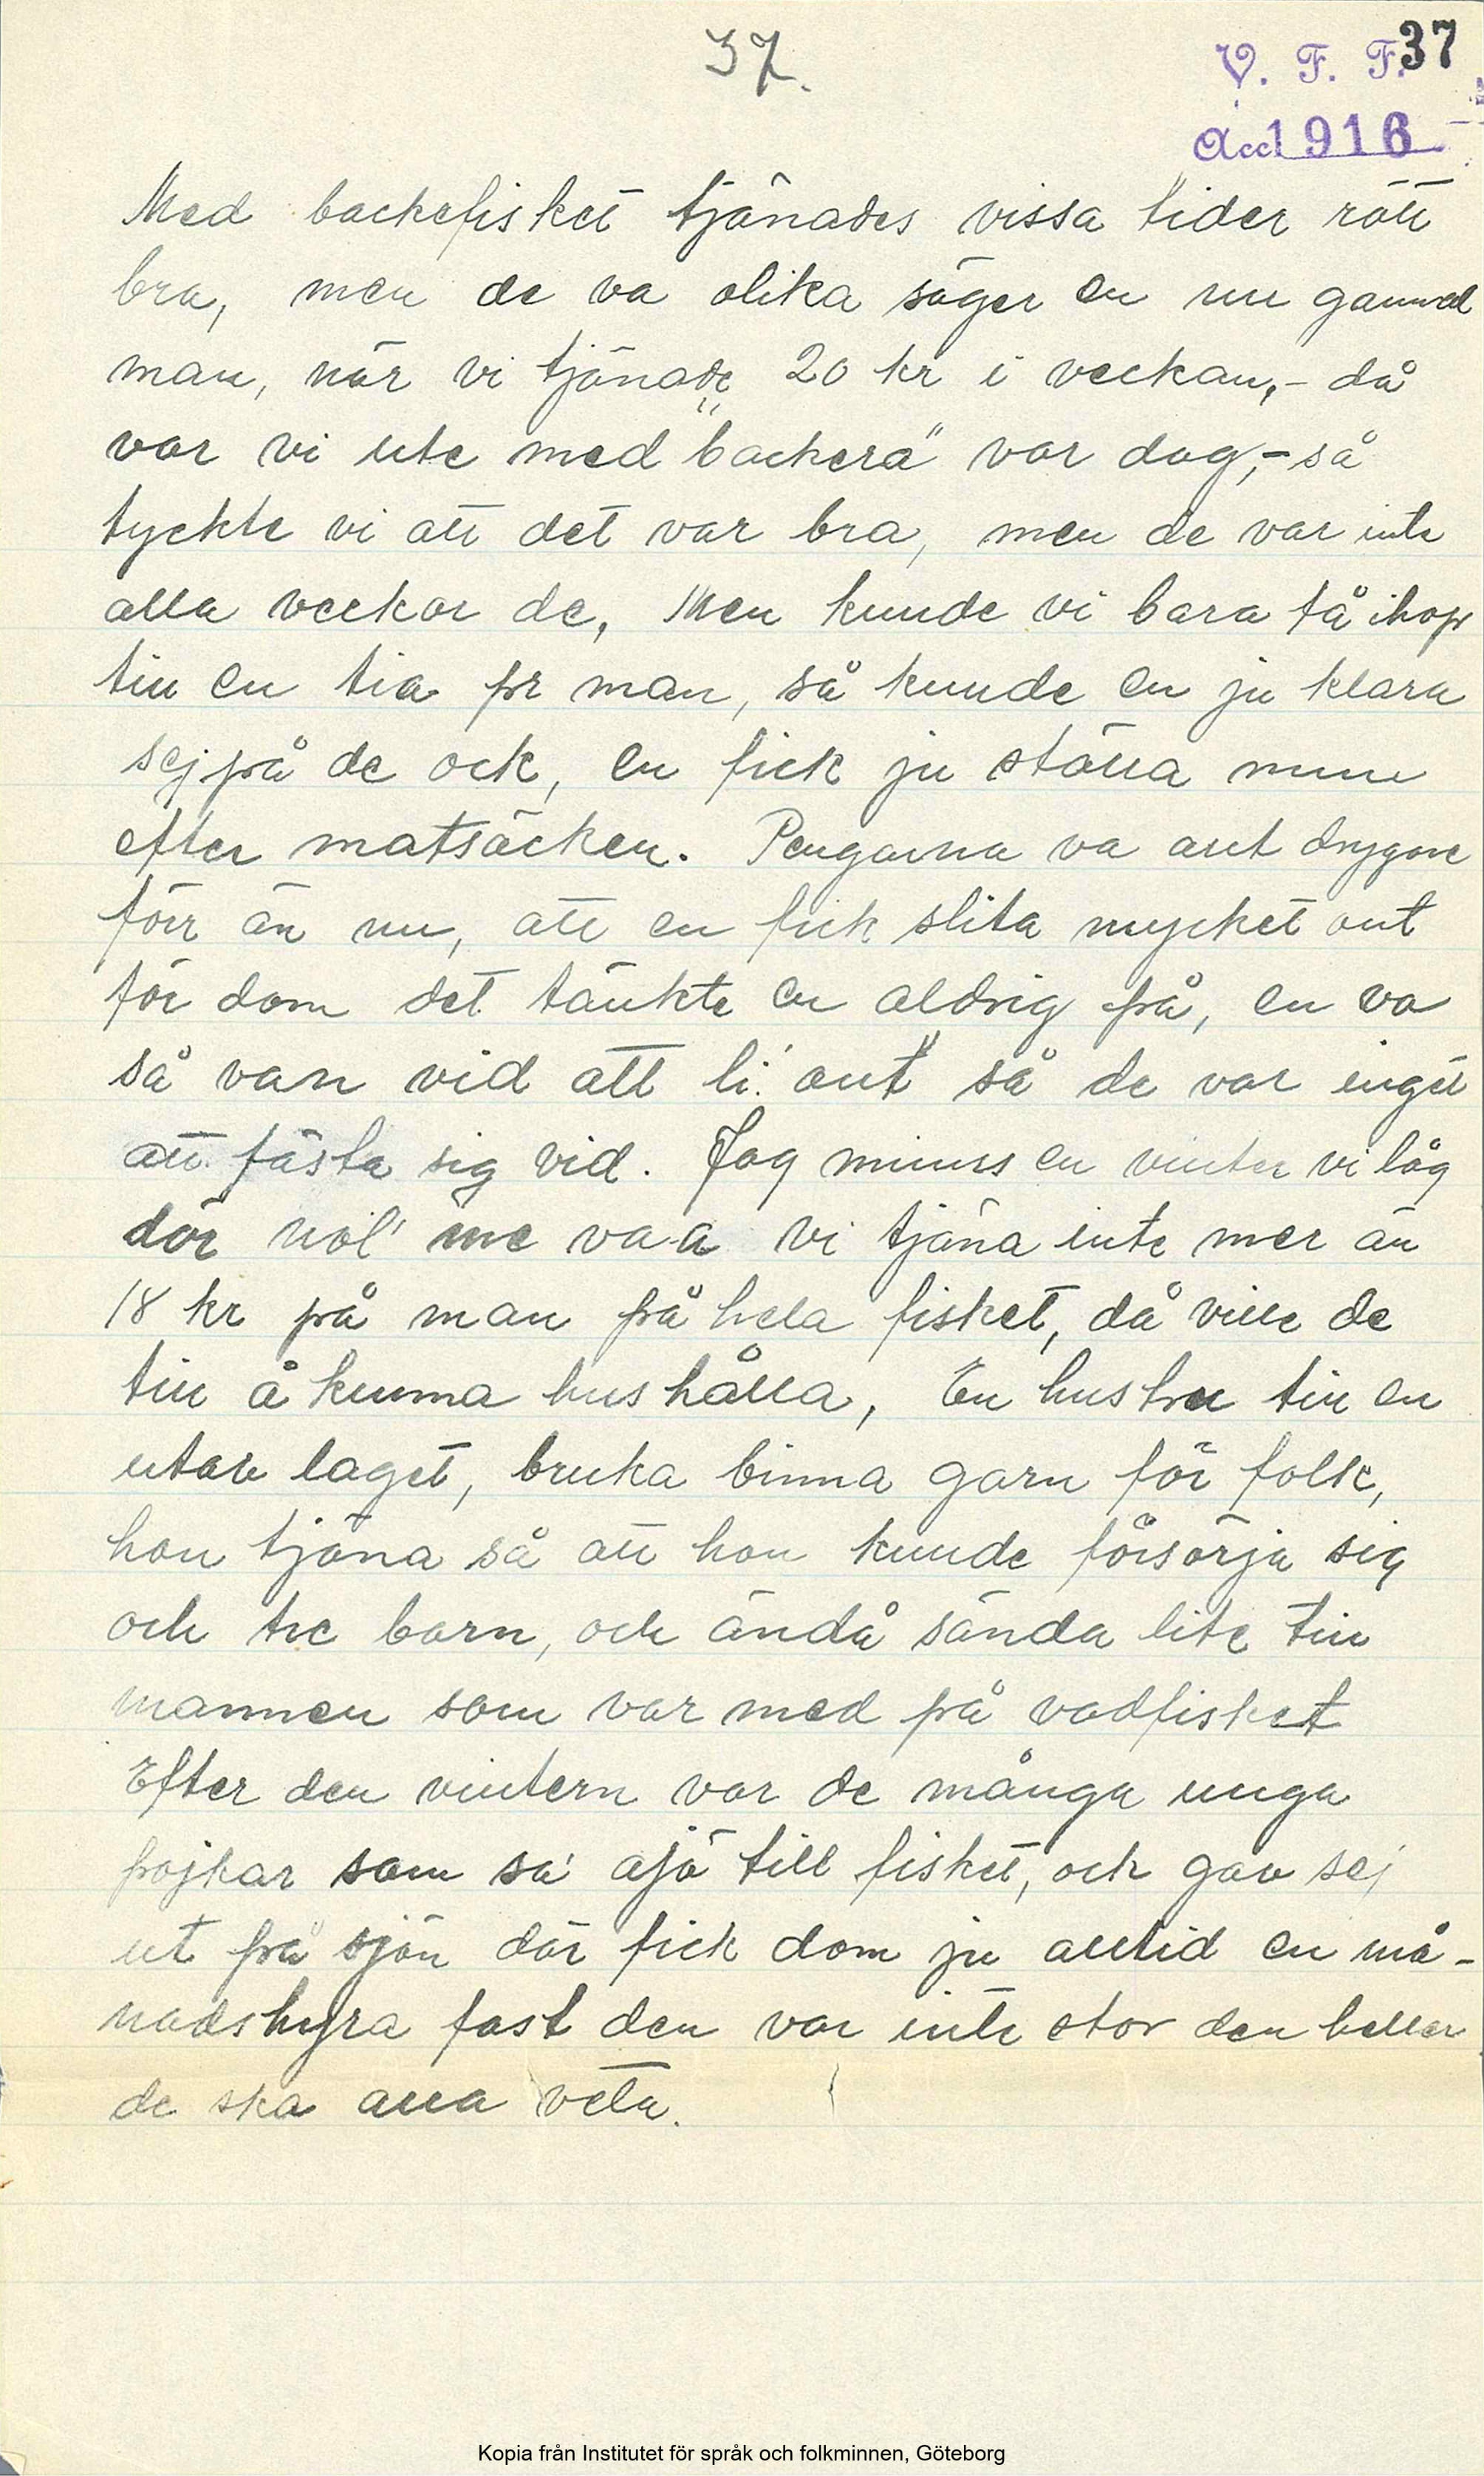 37.
V. F. F. 37
Acc 1916
Med backefisket tjänades vissa tider rätt
bra, men de va olika säger en nu gammal
man, när vi tjänade 20 kr i veckan, - då
var vi ute med "backera" var dag, - så
tyckte vi att det var bra, men de var inte
alla veckor de, Men kunde vi bara få ihop
till en tia pr man, så kunde en ju klara
sej på de ock, en fick ju ställa munn
efter matsäcken. Pengarna va allt drygare
förr än nu, att en fick slita mycket ont
för dom det tänkte en aldrig på, en va
så van vid att li' ont så de var inget
att fästa sig vid. Jag minns en vinter vi låg
där nol' me va-a vi tjäna inte mer än
18 kr på man på hela fisket, då ville de
till å kunna hushålla, En hustru till en
utav laget, bruka binna garn för folk,
hon tjäna så att hon kunde försörja sig
och tre barn, och ändå sända lite till
mannen som var med på vadfisket
Efter den vintern var de många unga
pojkar som sa' ajö till fisket, och gav sej
ut på sjön där fick dom ju alltid en må-
nadshyra fast den var inte stor den heller
de ska alla veta.
Kopia från Institutet för språk och folkminnen, Göteborg